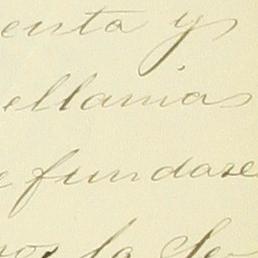 enta y
ellanias
e fundase
nos la Se-